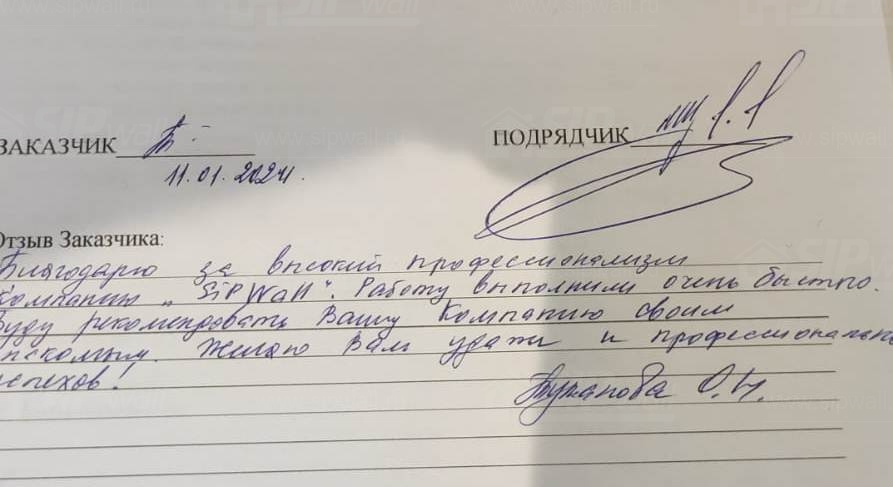 ЗАКАЗЧИК
ПОДРЯДЧИК
11.01.2024.
Отзыв Заказчика:
Благодарю за высокий профессионализм
компанию „SiPWall". Работу выполнили очень быстро.
Буду рекомендовать Вашу Компанию своим
знакомым. Желаю Вам удачи и профессиональных
успехов!
Туманова О.Н.